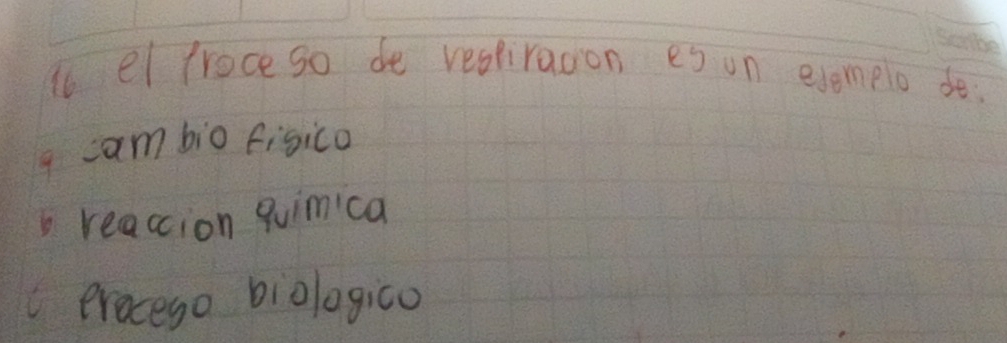 16 el proceso de respiracion es un ejemplo de:
a cambio fisico
b reaccion quimica
c proceso biologico
Scribe